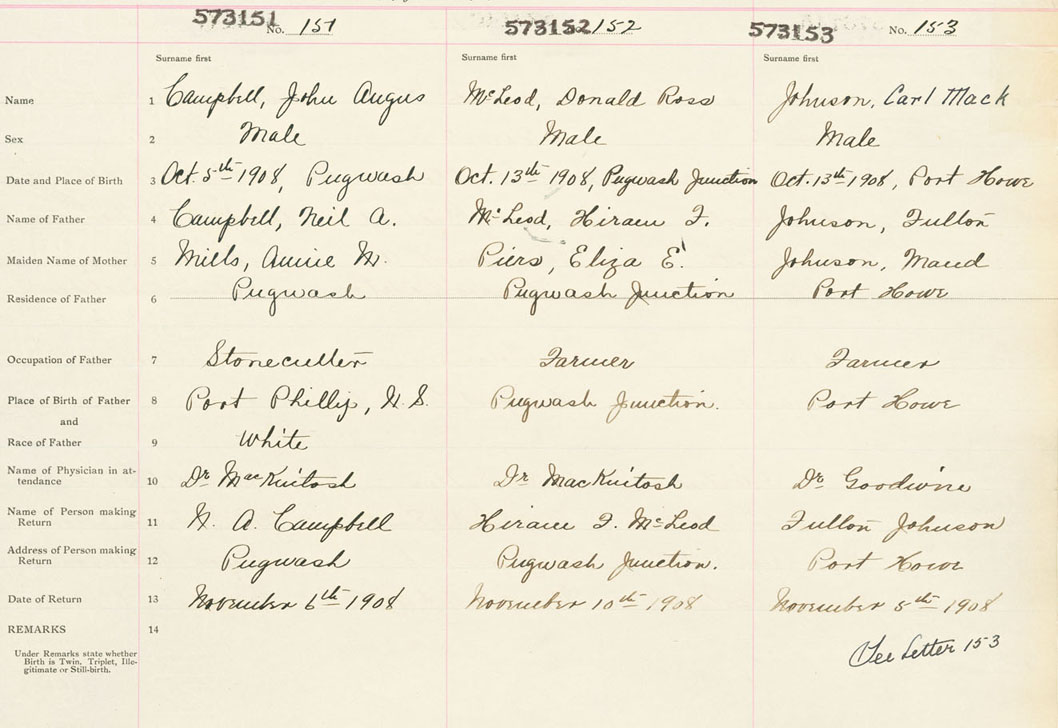 573151 No. 151 573152 152 573153 No. 153
Surname first Surname first Surname first
Name 1 Campbell, John Angus McLeod, Donald Ross Johnson, Carl Mack
Sex 2 Male Male Male
Date and Place of Birth 3 Oct. 5th 1908, Pugwash Oct. 13th 1908, Pugwash Junction Oct. 13th 1908, Port Howe
Name of Father 4 Campbell, Neil A. McLeod, Hiram F. Johnson, Fulton
Maiden Name of Mother 5 Mills, Annie M. Piers, Eliza E. Johnson, Maud
Residence of Father 6 Pugwash Pugwash Junction Port Howe
Occupation of Father 7 Stonecutter Farmer Farmer
Place of Birth of Father 8 Port Phillip, N.S. Pugwash Junction. Port Howe
and
Race of Father 9 White
Name of Physician in at-
tendance 10 Dr MacKintosh Dr MacKintosh Dr Goodwine
Name of Person making
Return 11 N. A. Campbell Hiram F. McLeod Fulton Johnson
Address of Person making
Return 12 Pugwash Pugwash Junction. Port Howe
Date of Return 13 November 6th 1908 November 10th 1908 November 5th 1908
REMARKS 14
Under Remarks state whether
Birth is Twin, Triplet, Ille-
gitimate or Still-birth.
See Letter 153